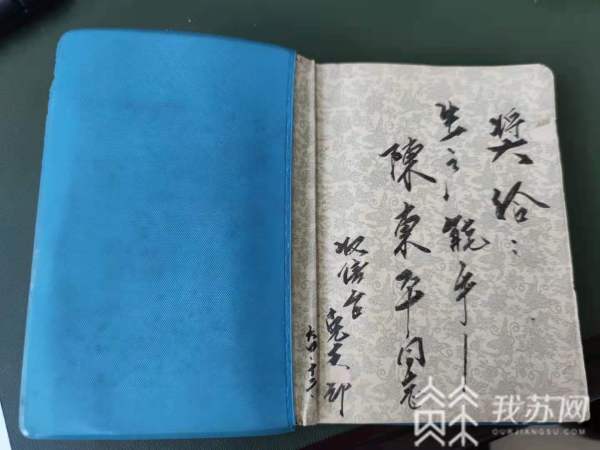 奖给：
生产能手
陳東平同志
收信台 党支部
六四.十二.
我苏网
OURJIANGSU.COM